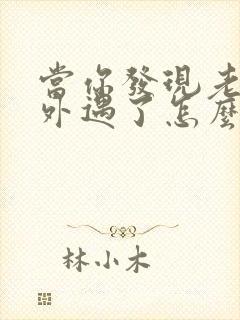 當你發現老
外遇了怎麼
林小木